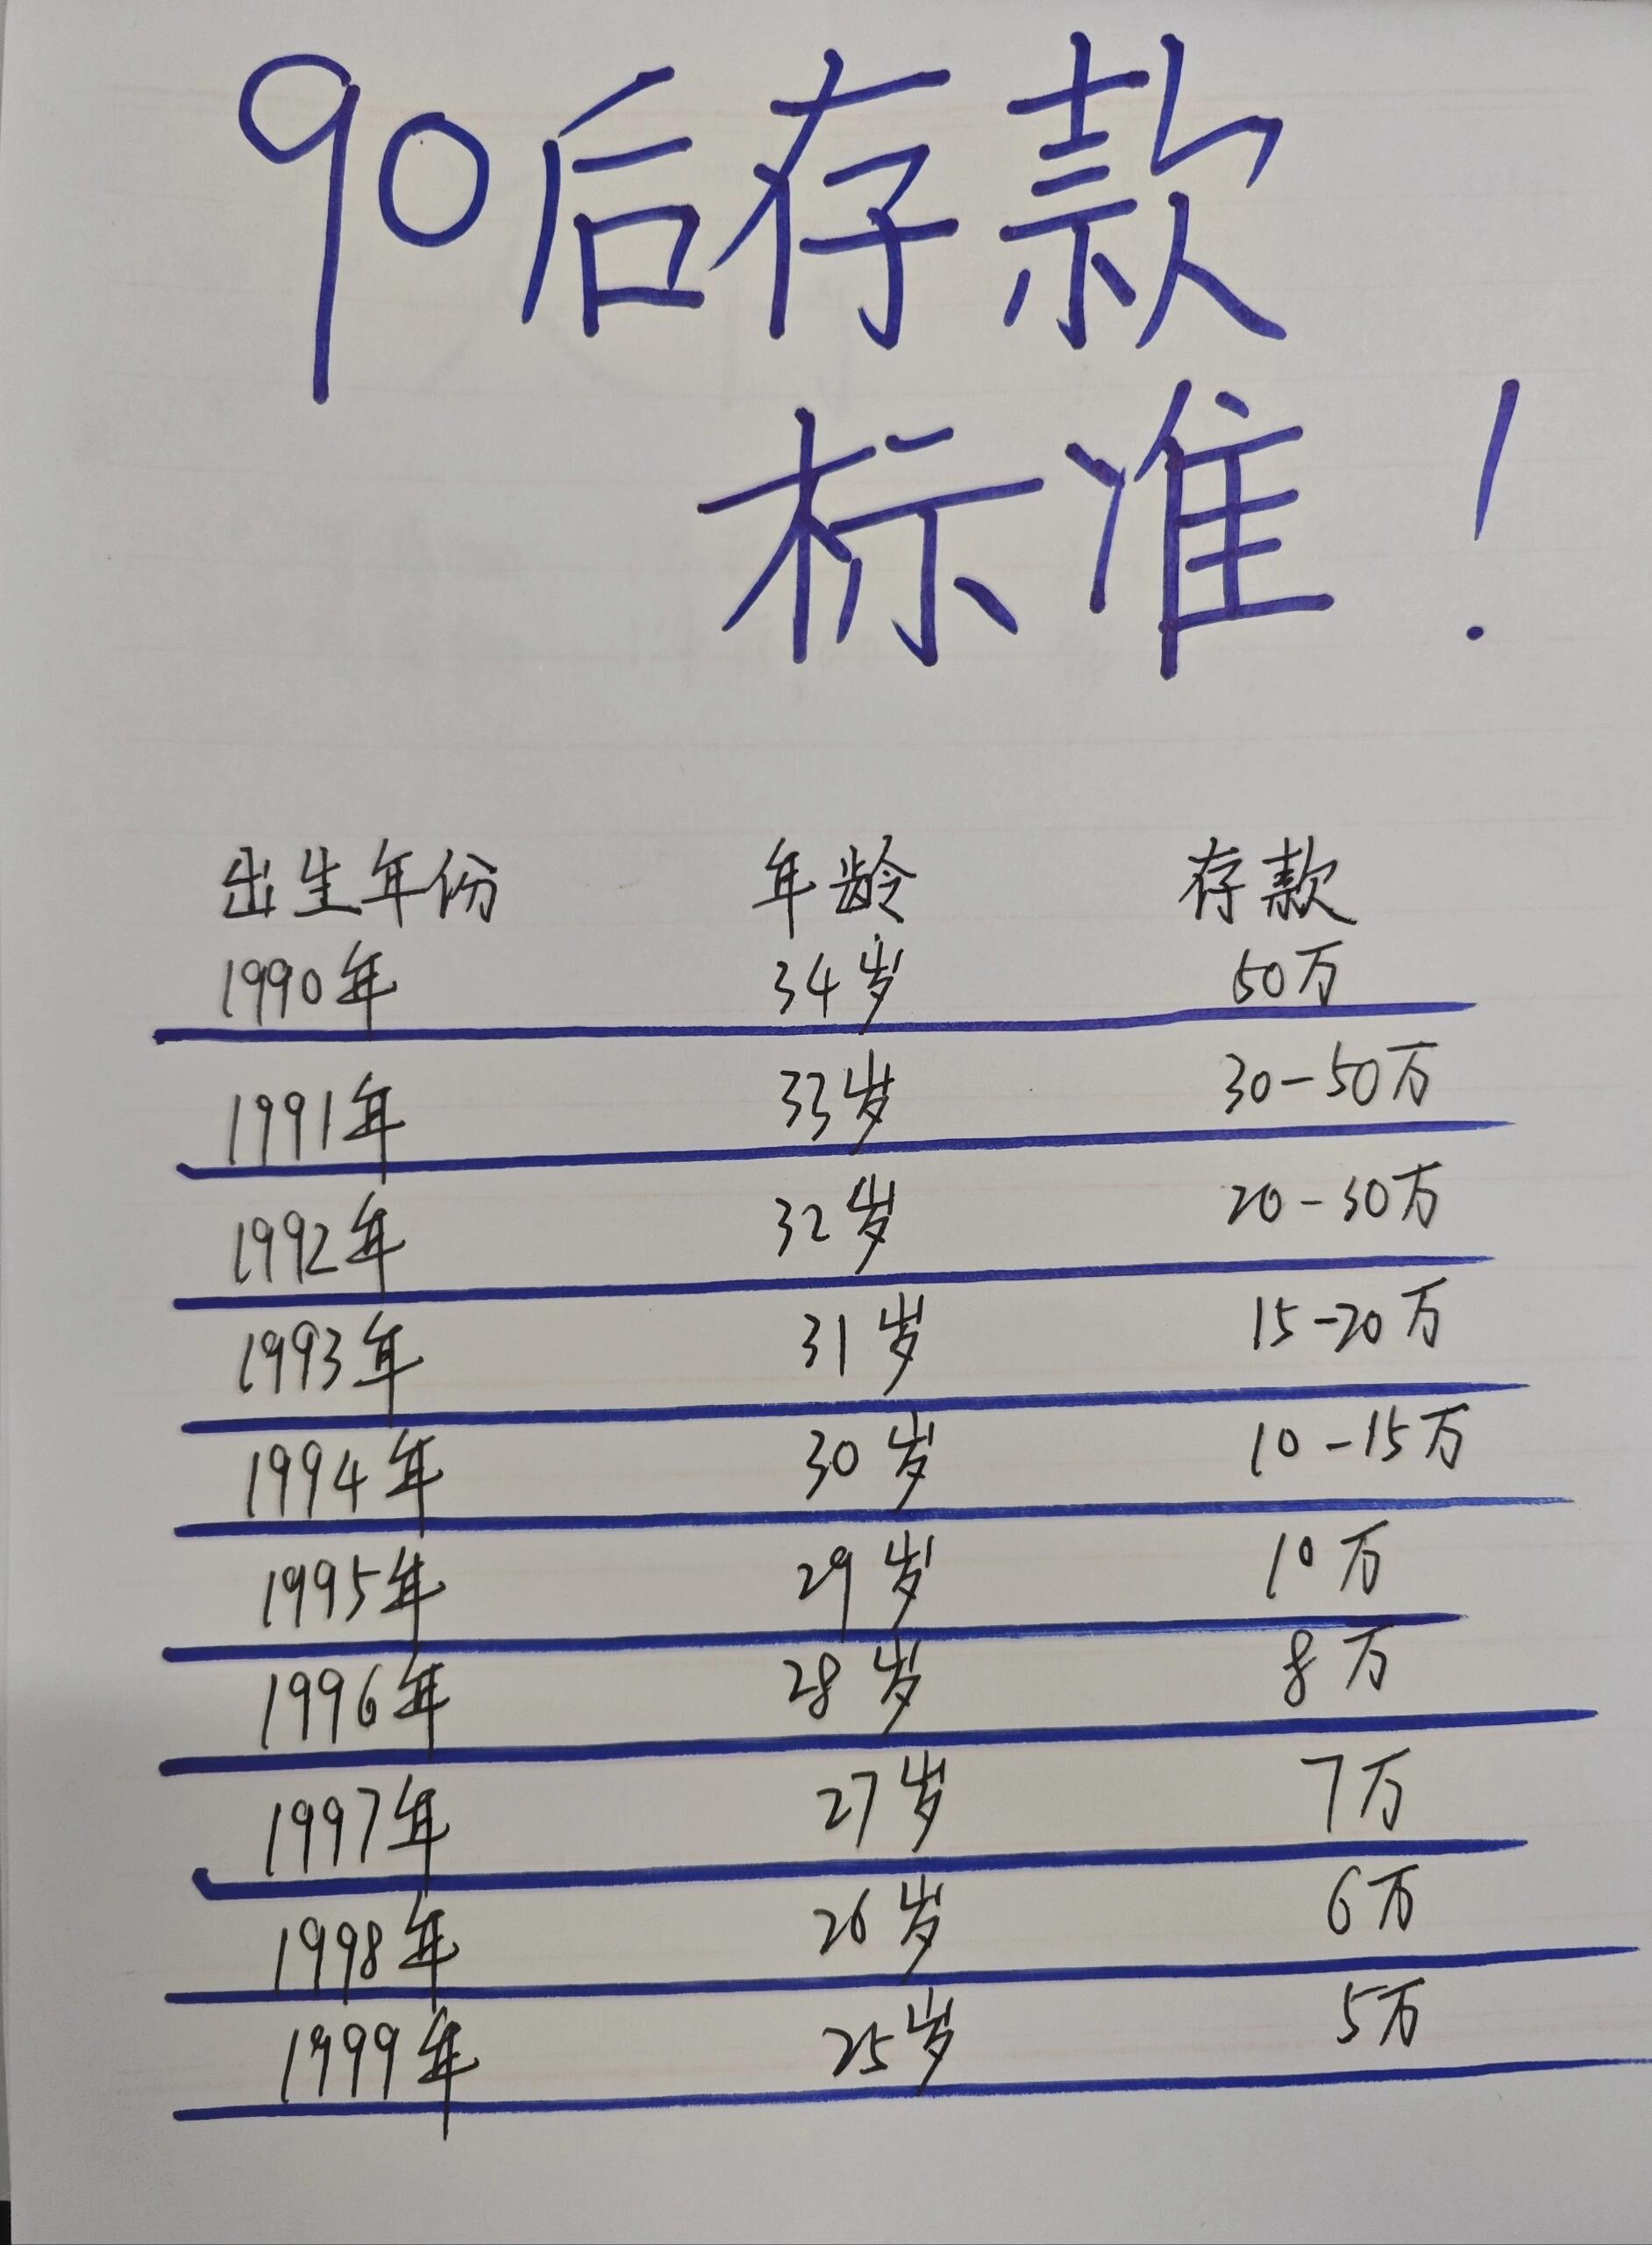 90后存款
标准！
出生年份 年龄 存款
1990年 34岁 50万
1991年 33岁 30-50万
1992年 32岁 20-30万
1993年 31岁 15-20万
1994年 30岁 10-15万
1995年 29岁 10万
1996年 28岁 8万
1997年 27岁 7万
1998年 26岁 6万
1999年 25岁 5万